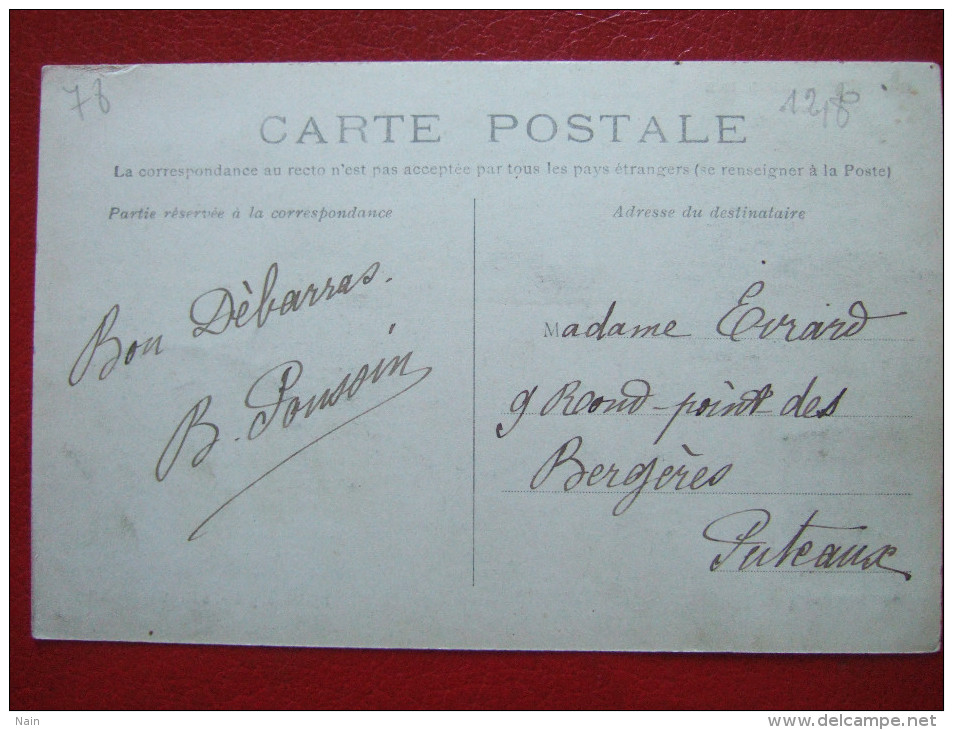 78
CARTE POSTALE
La correspondance au recto n'est pas acceptée par tous les pays étrangers (se renseigner à la Poste)
Partie réservée à la correspondance
Bon Dèbarras.
B. Poussin
Adresse du destinataire
Madame Evrard
9 Rond-point des
Bergères
Puteaux
Nain
www.delcampe.net